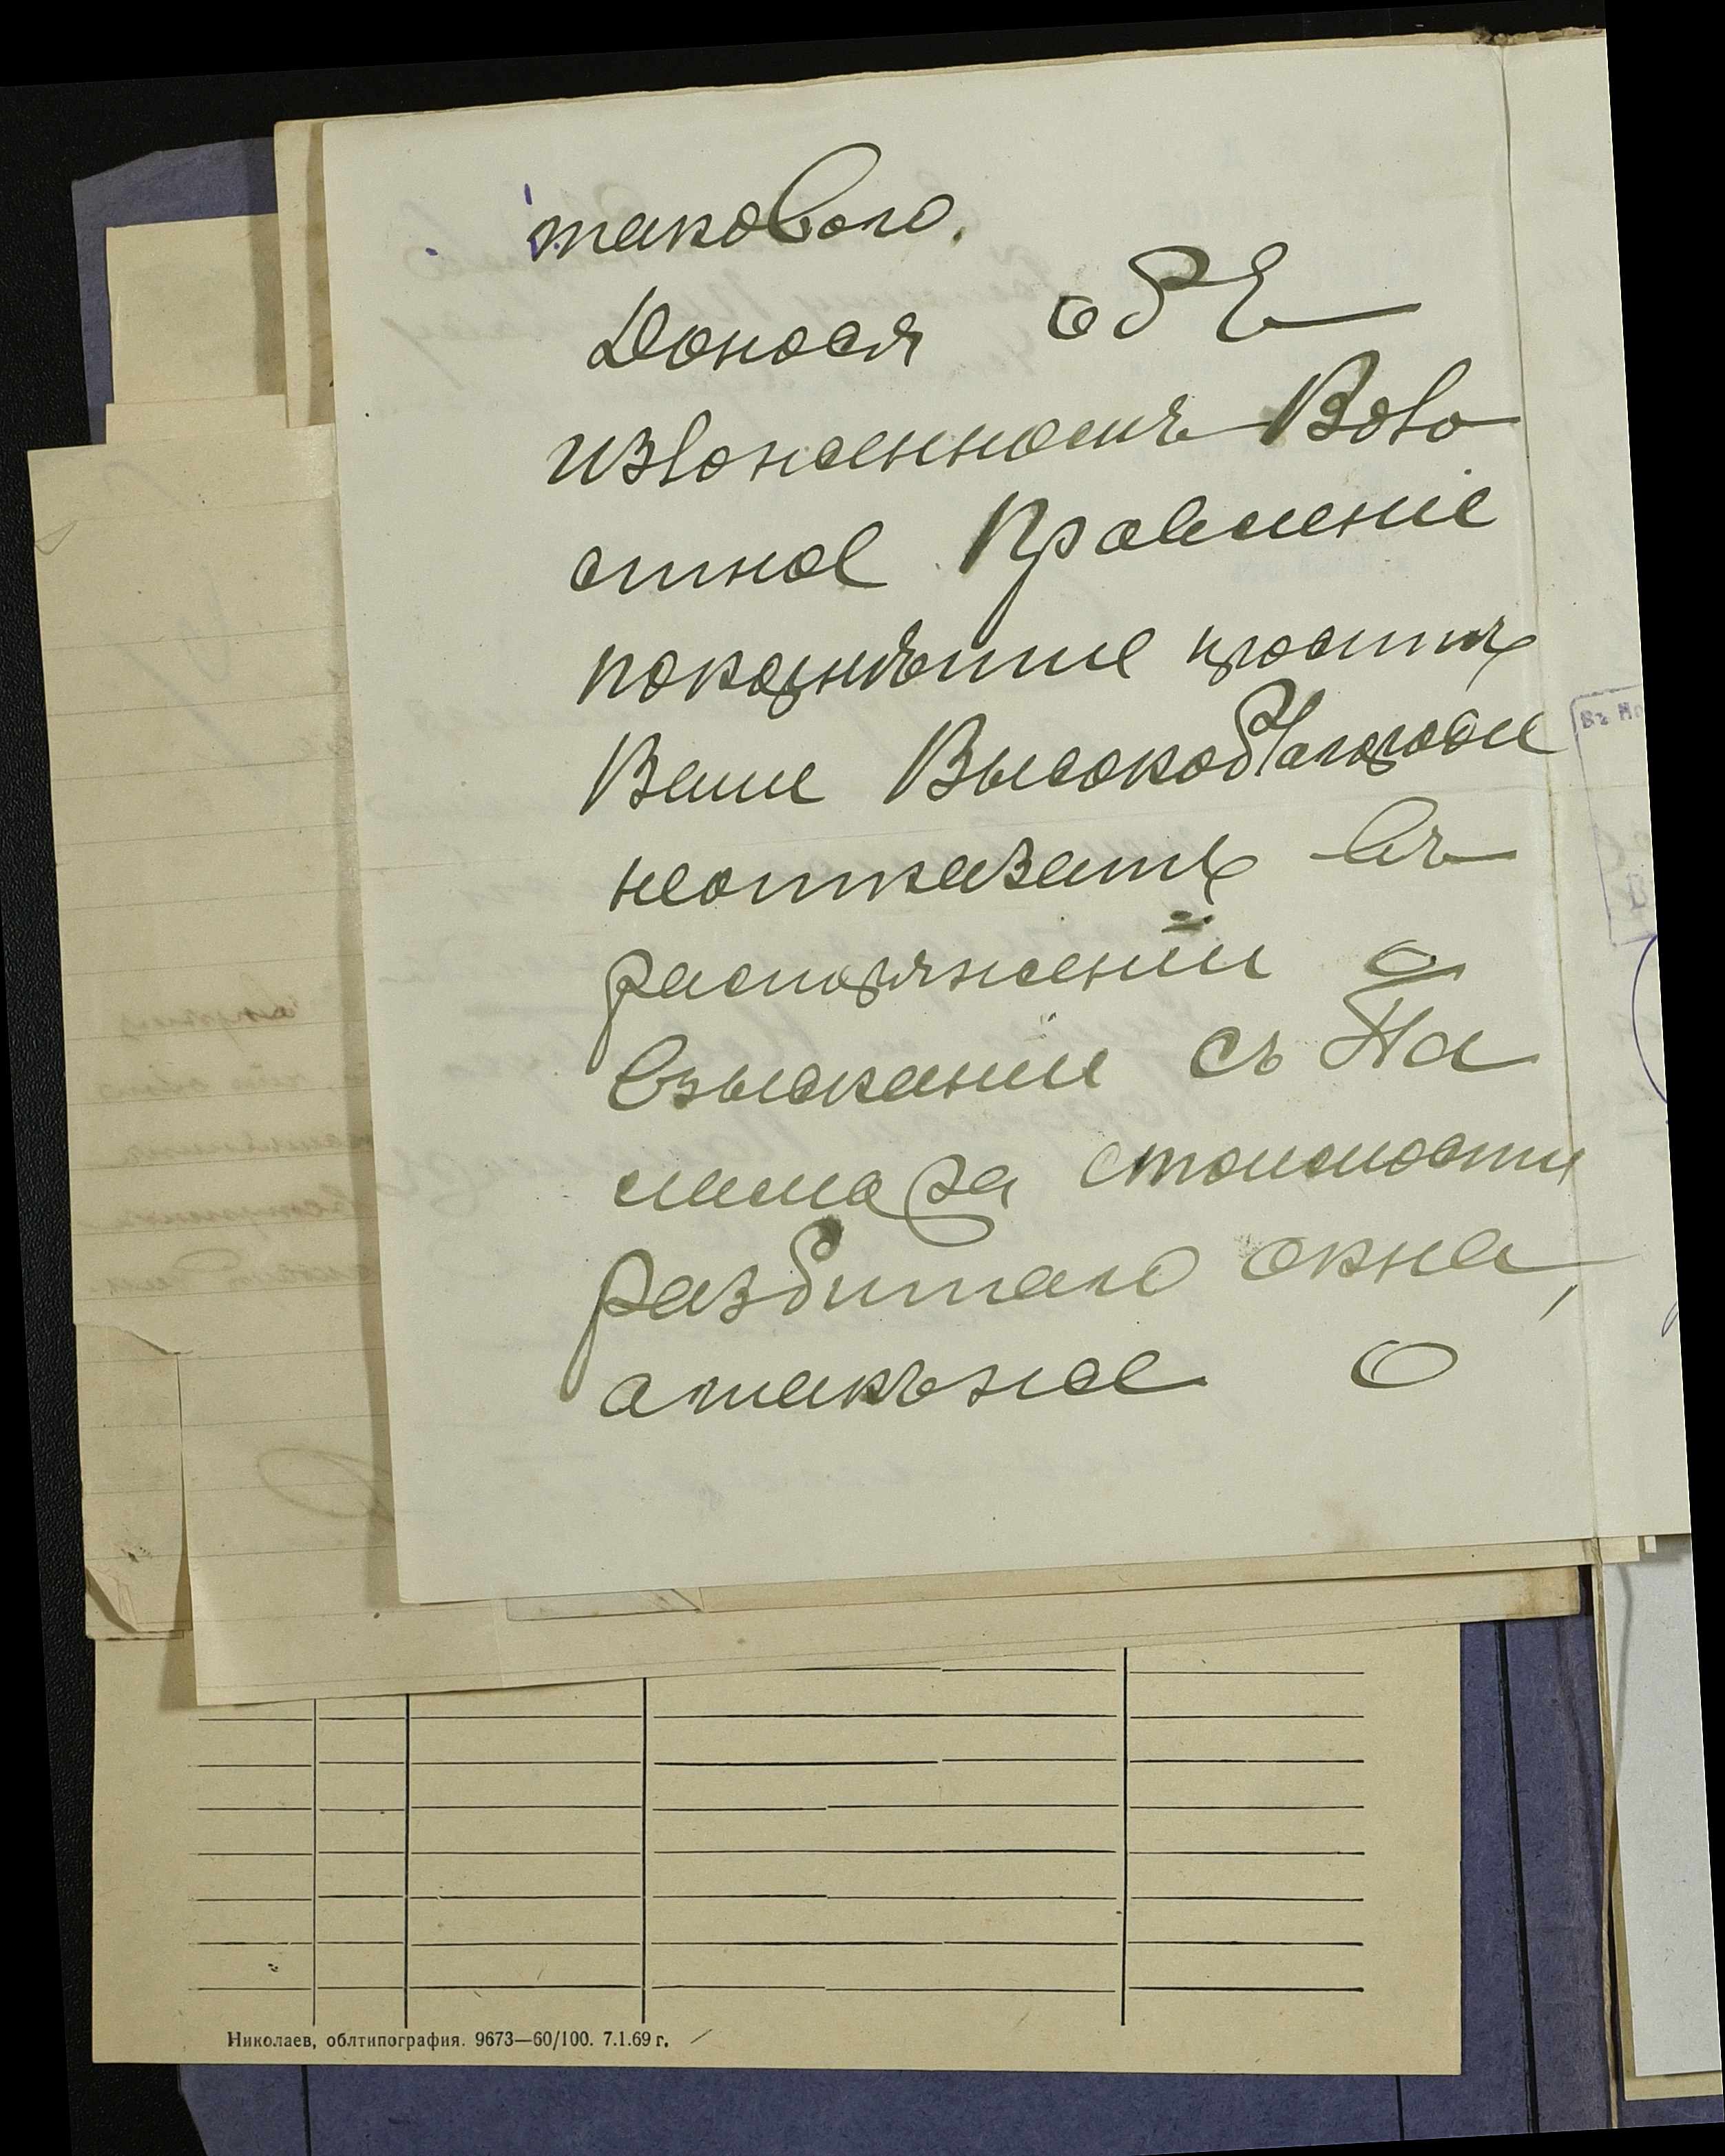 таковаго.
Донося объ
изложенномъ Воло
стное Правленіе
покорнѣйше проситъ
Ваше Высокоблагородіе
неотказать въ
распоряженіи о
взысканіи съ
стоимости
разбитаго окна,
а также о
Николаев, облтипография. 9673—60/100. 7.1.69 г.